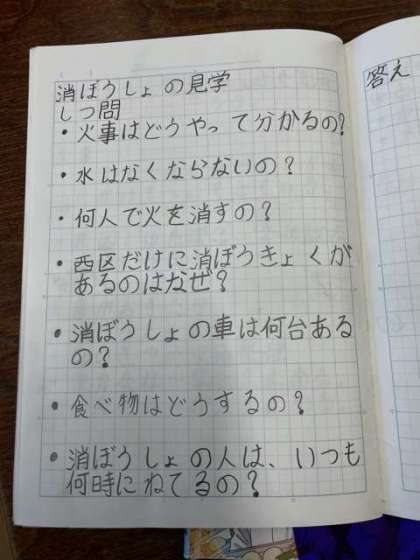 消ぼうしょの見学
しつ問
・火事はどうやって分かるの?
・水はなくならないの?
・何人で火を消すの?
・西区だけに消ぼうきょくが
あるのはなぜ?
・消ぼうしょの車は何台ある
の?
・食べ物はどうするの?
・消ぼうしょの人は、いつも
何時にねてるの?
答え